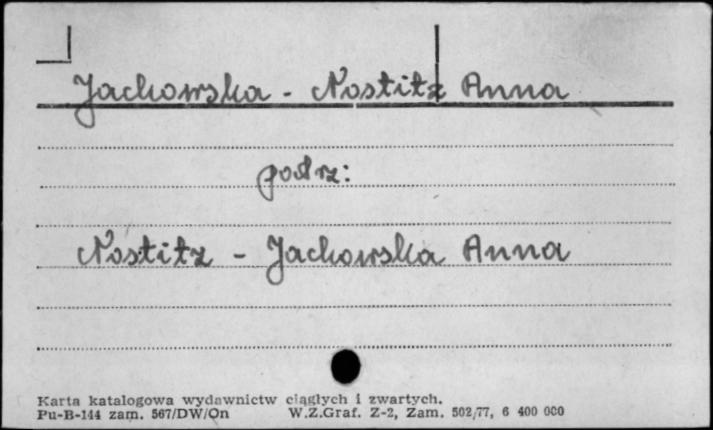 Jackowska - Nostitz Anna
podrz:
Nostitz - Jackowska Anna
Karta katalogowa wydawnictw ciągłych i zwartych.
Pu-B-144 zam. 567/DW/On W.Z.Graf. Z-2, Zam. 502/77, 6 400 000